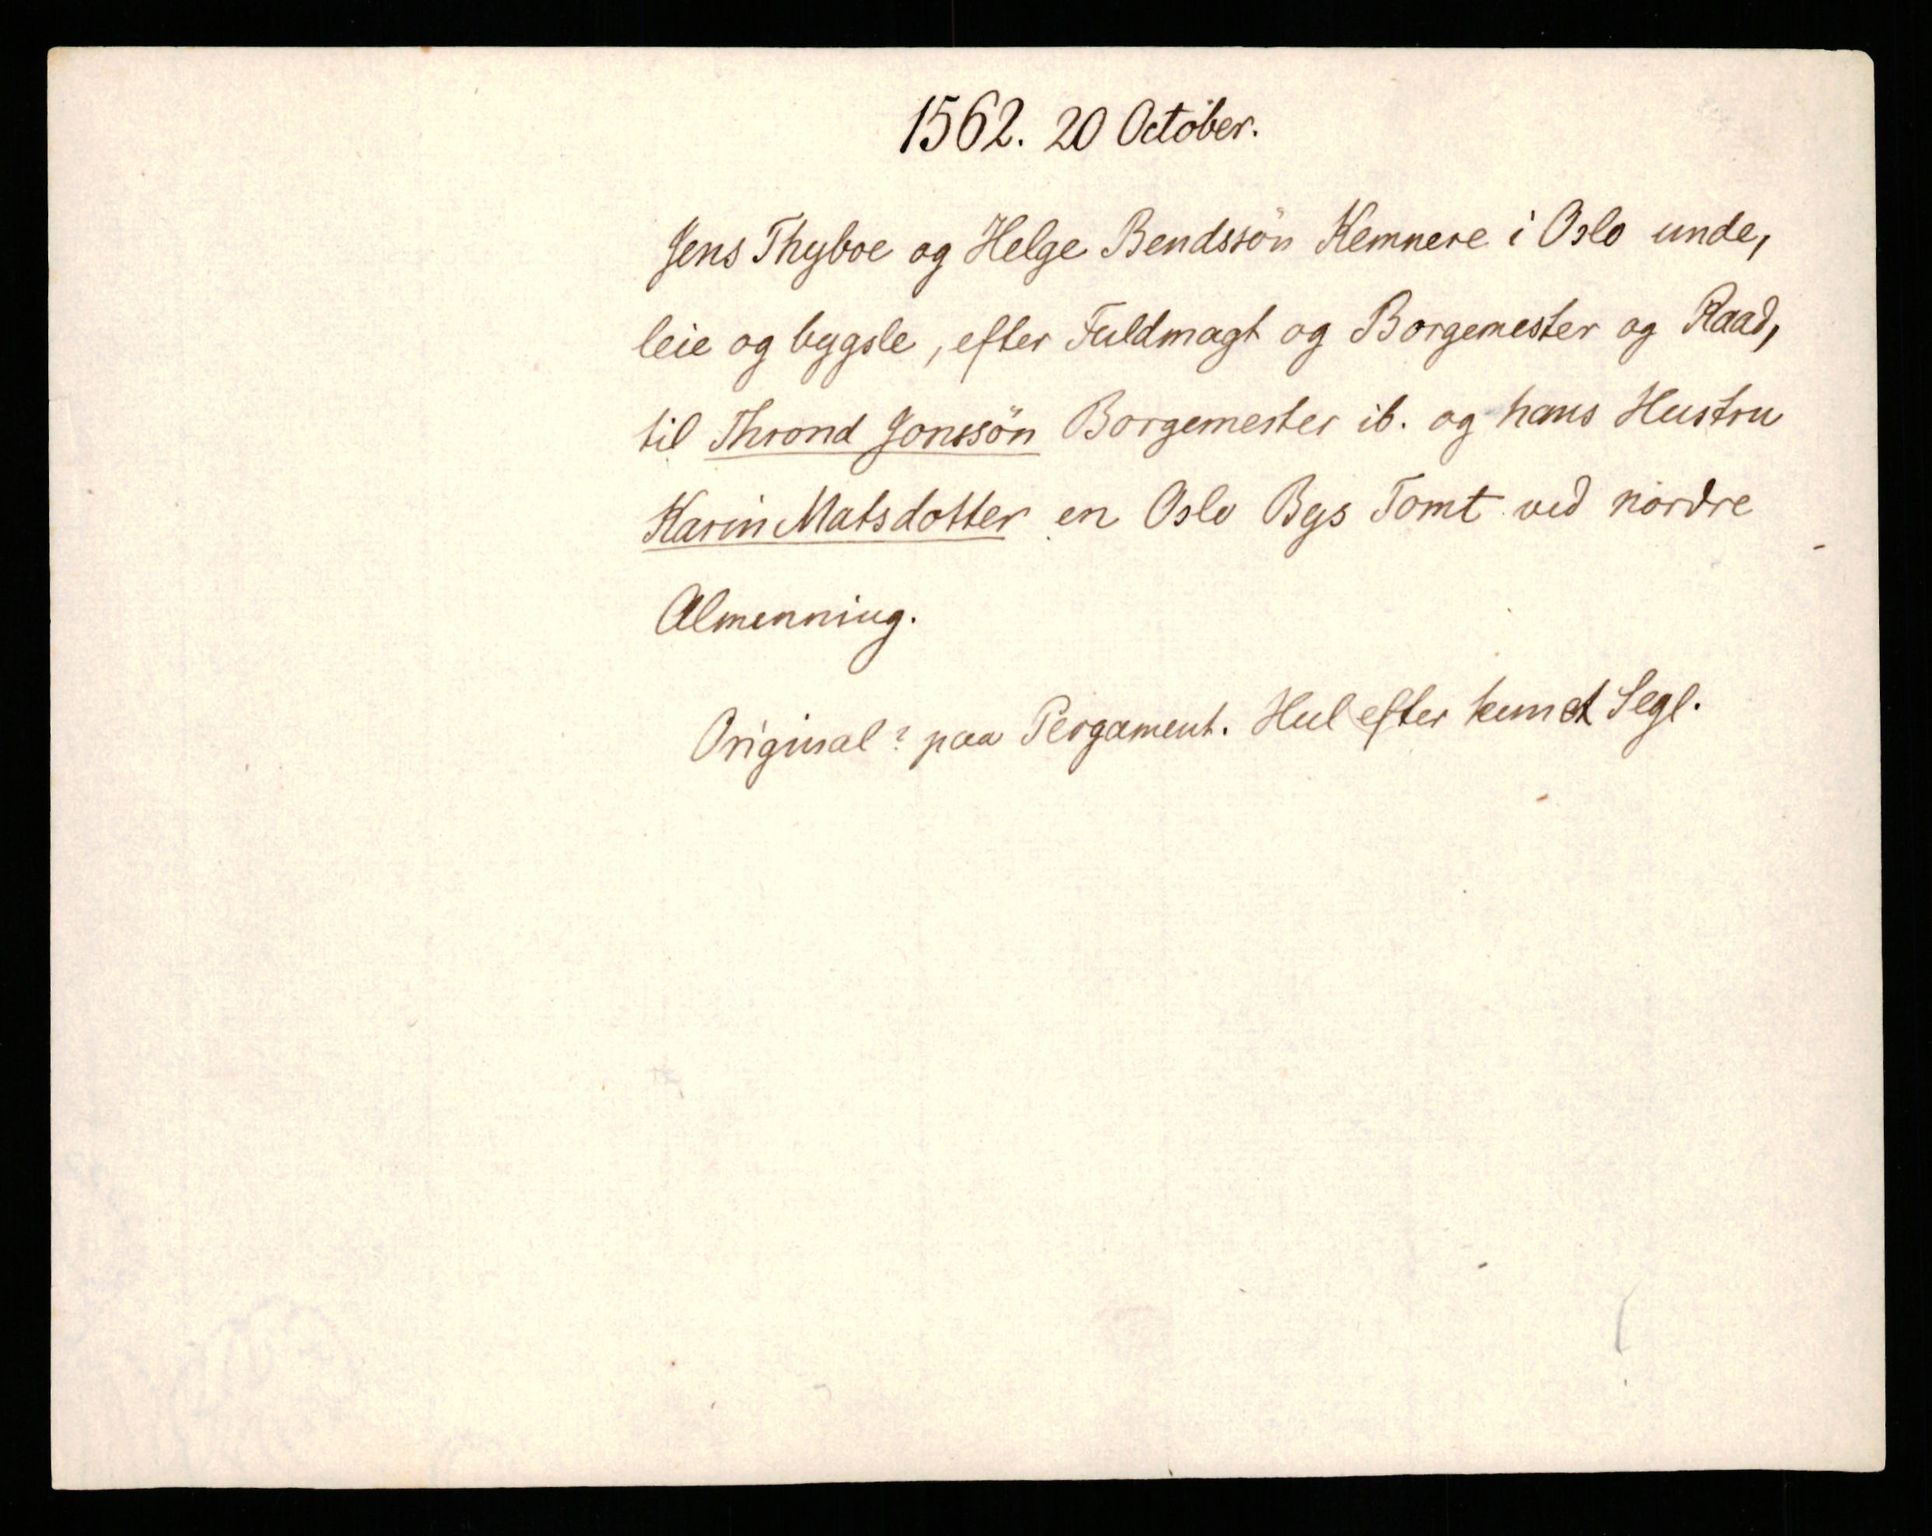 1562. 20 October.
Jens Thyboe og Helge Bendssön Kemnere i Oslo unde,
leie og bygsle, efter Fuldmagt og Borgemester og Raad,
til Thrond Jonssön Borgemester ib. og hans Hustru
Karin Matsdotter en Oslo Bys Tomt ved nordre
Almenning.
Original? paa Pergament. Hul efter kun et Segl.